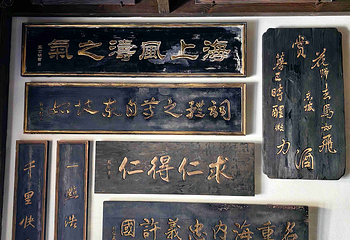 海上風濤之氣
詞體之尊自東坡始
求仁得仁
名重海内忠義許國
一點浩
千里快
賞
花歸去馬如飛
酒
暮已時醒微力
東坡